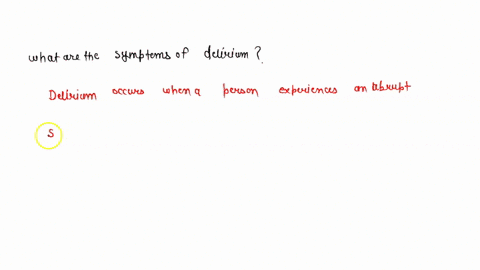 what are the symptoms of delirium?
Delirium occurs when a person experiences an abrupt
s